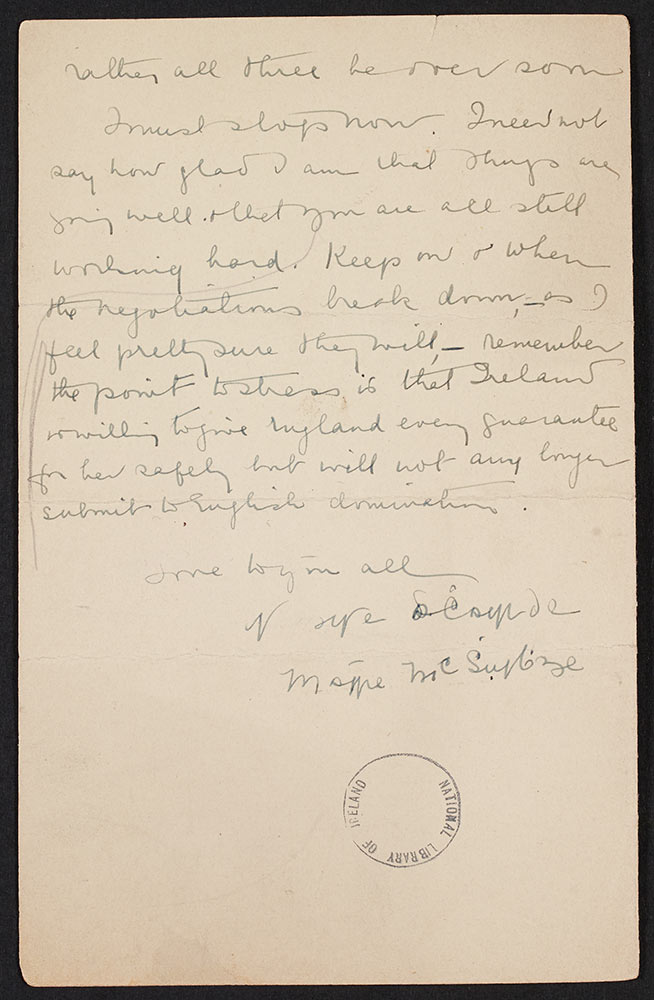 rather all three be over soon
I must stop now. I need not
say how glad I am that things are
going well & that you are all still
working hard. Keep on & when
the negotiations break down, – as I
feel pretty sure they will, – remember
the point to stress is that Ireland
is willing to give England every guarantee
for her safety but will not any longer
submit to English domination.
Love to you all
Máire
NATIONAL LIBRARY OF IRELAND